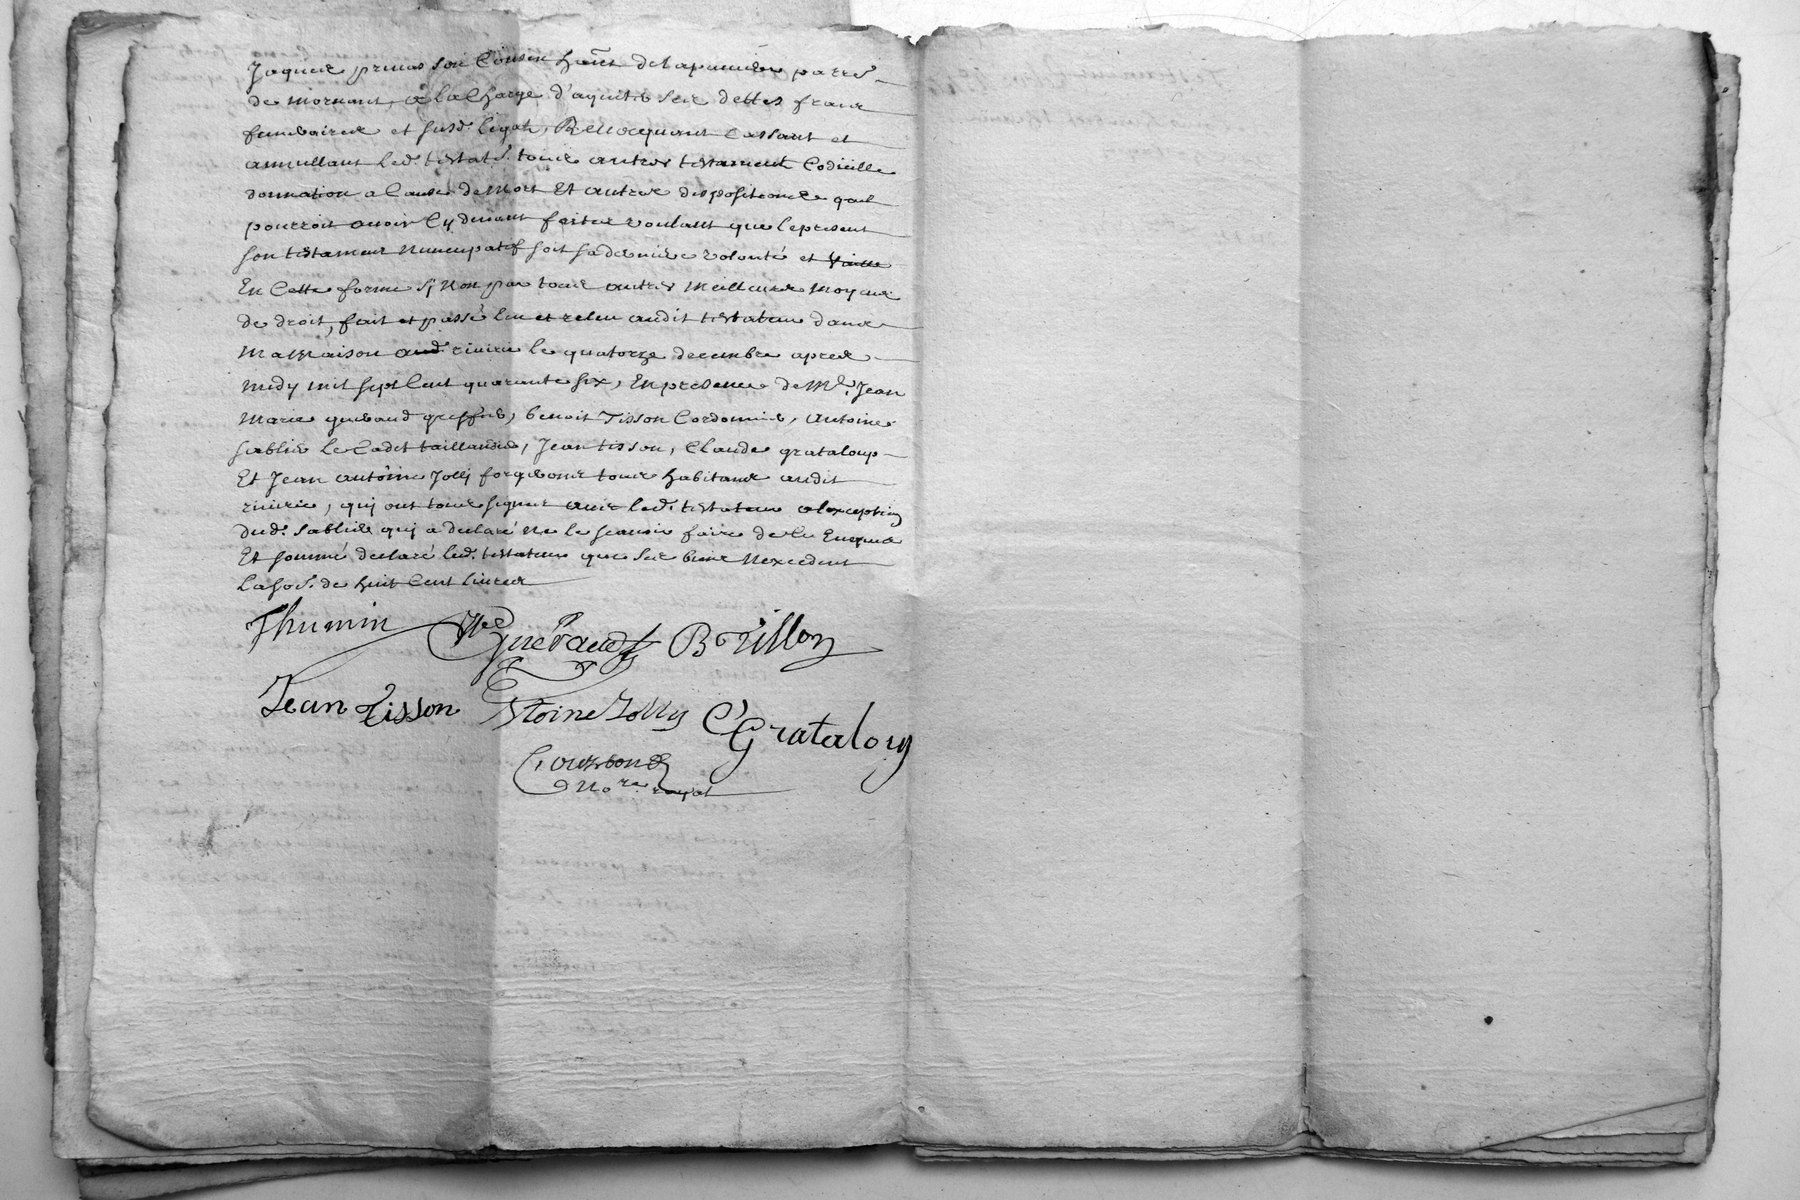 Jaques prinas son Cousin hant de lapaumiere parrse
de mornant, a la Charge d'aquiter ses dettes fraix
funeraires et susd. legats, Revocquant Cassant et
annullant led. testatr. tous autres testament Codicille
donnation a Cause de Mort Et autres dispositions quil
pourroit avoir Cy devant faites voulant que le present
son testament Nuncupatif soit sa derniere volonté et vaille
En Cette forme sy Non par tous autres Meilleurs Moyens
de droit, fait et passé leu et releu audit testateur dans
Ma Maison aud. riverie le quatorze decembre apres
midy mil sept Cent quarante six, En presence de Me. Jean
Marie gueraud greffier, benoit Tisson Cordonnier, Antoine
sablier le Cadet taillandier, Jean tisson, Claude grataloup
Et Jean antoine Jolly forgerons tous habitans audit
riverie, qui ont tous signés avec led. testateur a lexception
dud. sablier qui a declaré Ne le scavoir faire de ce Enquis
Et sommé declaré led. testateur que ses biens Nexcedent
la so. de huit Cent livres
Thumin Gueraud B Tisson
Jean Tisson Ntoine Jolly C Grataloup
Nore. royal